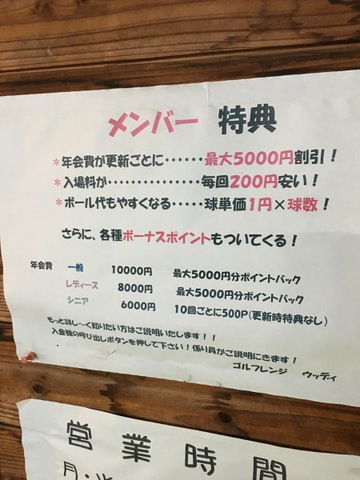 メンバー 特典
*年会費が更新ごとに・・・・・・最大5000円割引!
*入場料が・・・・・・・・・・・・・・・毎回200円安い!
*ボール代もやすくなる・・・・・球単価1円×球数!
さらに、各種ボーナスポイントもついてくる!
年会費 一般 10000円 最大5000円分ポイントバック
レディース 8000円 最大5000円分ポイントバック
シニア 6000円 10回ごとに500P(更新時特典なし)
もっと詳し〜く知りたい方はご説明いたします!!
入金機の呼び出しボタンを押して下さい!係り員がご説明にきます!
ゴルフレンジ ウッディ
営業時間
月・